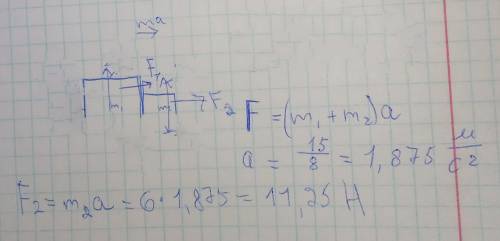 ma
F₁
m₁ m₂ F₂
F = (m₁ + m₂)a
a = 15/8 = 1,875 м/с²
F₂ = m₂a = 6 · 1,875 = 11,25 Н